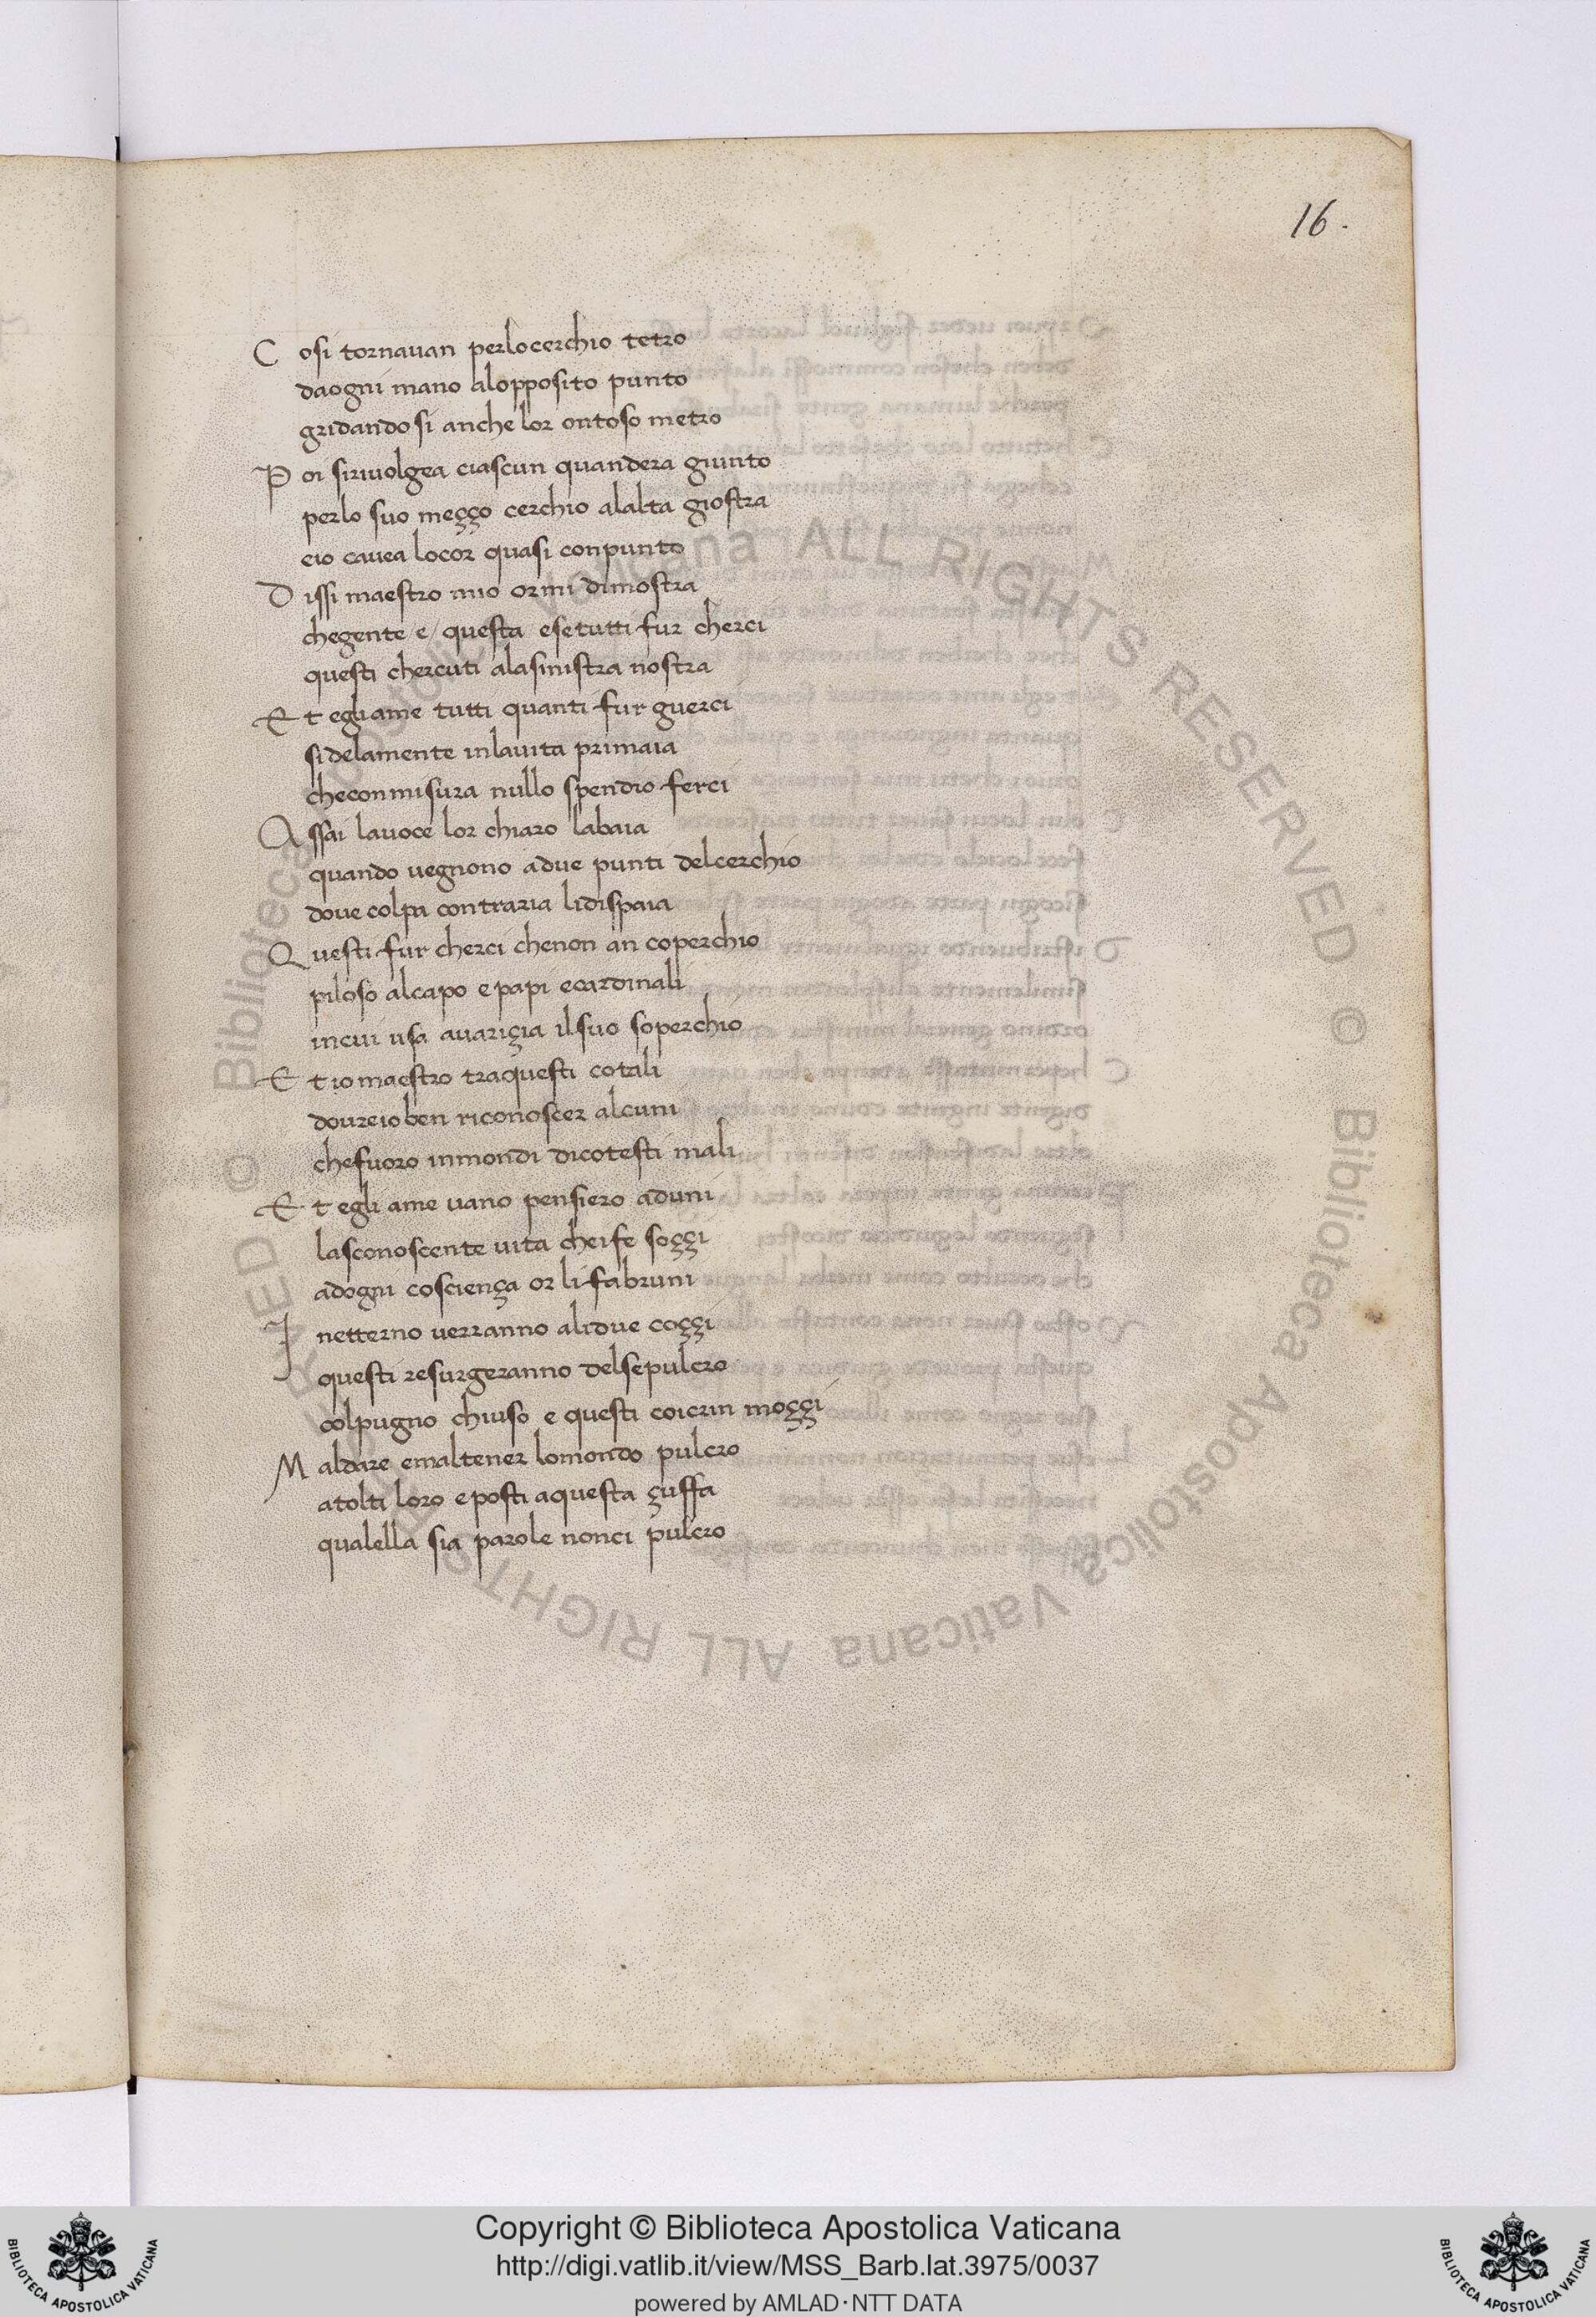 16.
C osi tornauan perlocerchio tetro
daogni mano alopposito punto
gridandosi anche lor ontoso metro
P oi siriuolgea ciascun quandera giunto
perlo suo meçço cerchio alalta giostra
eio cauea locor quasi conpunto
D issi maestro mio ormi dimostra
chegente e/ questa esetutti fur cherci
questi chercuti alasinistra nostra
E t egliame tutti quanti fur guerci
sidelamente inlauita primaia
checonmisura nullo spendio ferci
A ssai lauoce lor chiaro labaia
quando uegnono adue punti delcerchio
doue colpa contraria lidispaia
Q uesti fur cherci chenon an coperchio
piloso alcapo e papi ecardinali
incui usa auariçia ilsuo soperchio
E t io maestro traquesti cotali
doureioben riconoscer alcuni
chefuoro inmondi dicotesti mali
E t egli ame uano pensiero aduni
lasconoscente uita cheife soççi
adogni cosciença or li fabruni
I netterno uerranno alidue coççi
questi resurgeranno delsepulcro
colpugno chiuso e questi coicrin moççi
M aldare emaltener lomondo pulcro
atolti loro eposti aquesta çuffa
qualella sia parole nonci pulcro
© Biblioteca Apostolica Vaticana ALL RIGHTS RESERVED © Biblioteca Apostolica Vaticana ALL RIGHTS RESERVED
Copyright © Biblioteca Apostolica Vaticana
http://digi.vatlib.it/view/MSS_Barb.lat.3975/0037
powered by AMLAD·NTT DATA
BIBLIOTECA APOSTOLICA VATICANA
BIBLIOTECA APOSTOLICA VATICANA